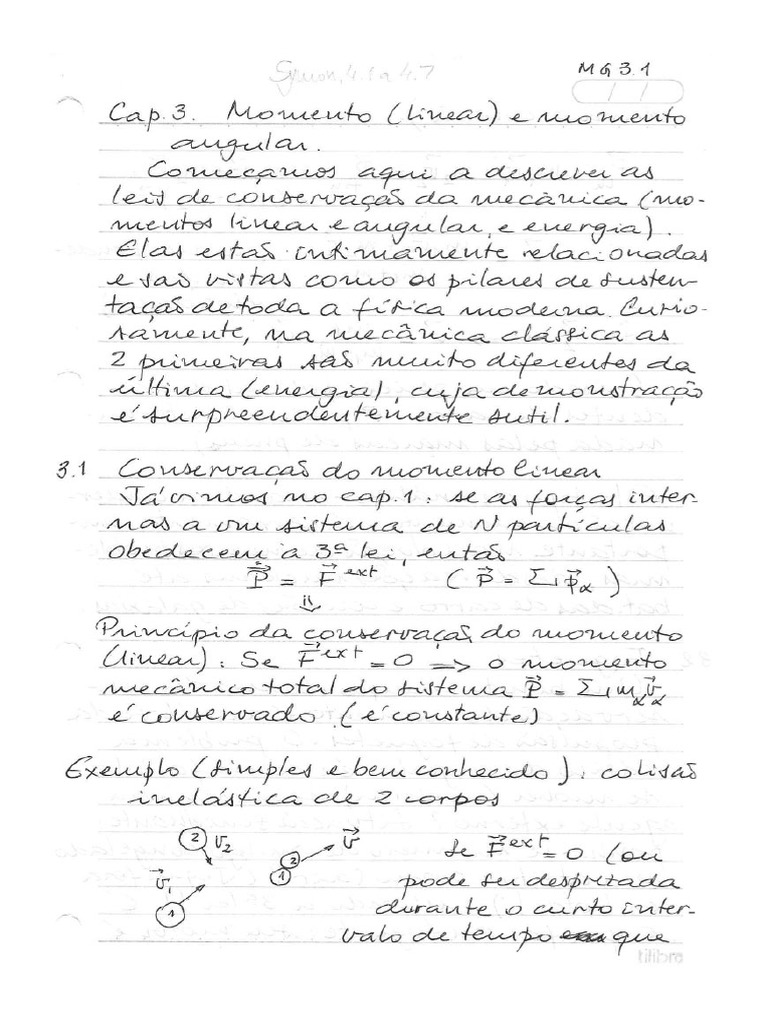 Symon, 4.1 a 4.7
MG 3.1
Cap. 3. Momento (linear) e momento
angular.
Começamos aqui a descrever as
leis de conservação da mecânica (mo-
mentos linear e angular, e energia).
Elas estão intimamente relacionadas
e são vistas como os pilares de susten-
tação de toda a física moderna. Curio-
samente, na mecânica clássica as
2 primeiras são muito diferentes da
última (energia), cuja demonstração
é surpreendentemente sutil.
3.1 Conservação do momento linear
Já vimos no cap. 1: se as forças inter-
nas a um sistema de N partículas
obedecem a 3ª lei, então
$\dot{\vec{P}} = \vec{F}^{ext}$ ($\vec{P} = \sum \vec{p}_\alpha$)
⇓
Princípio da conservação do momento
(linear): Se $\vec{F}^{ext} = 0$ => o momento
mecânico total do sistema $\vec{P} = \sum m_\alpha \vec{v}_\alpha$
é conservado. (é constante)
Exemplo (simples e bem conhecido): colisão
inelástica de 2 corpos
2 $\vec{v}_2$ $\vec{v}$
2
1
$\vec{v}_1$
1
Se $\vec{F}^{ext} = 0$ (ou
pode ser desprezada
durante o curto inter-
valo de tempo que
tilibra